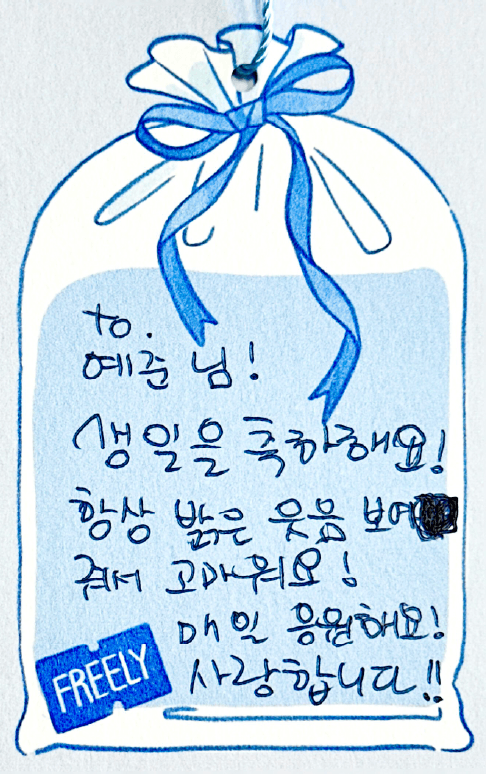 to.
예준 님!
생일을 축하해요!
항상 밝은 웃음 보여
줘서 고마워요!
매일 응원해요!
사랑합니다!!
FREELY